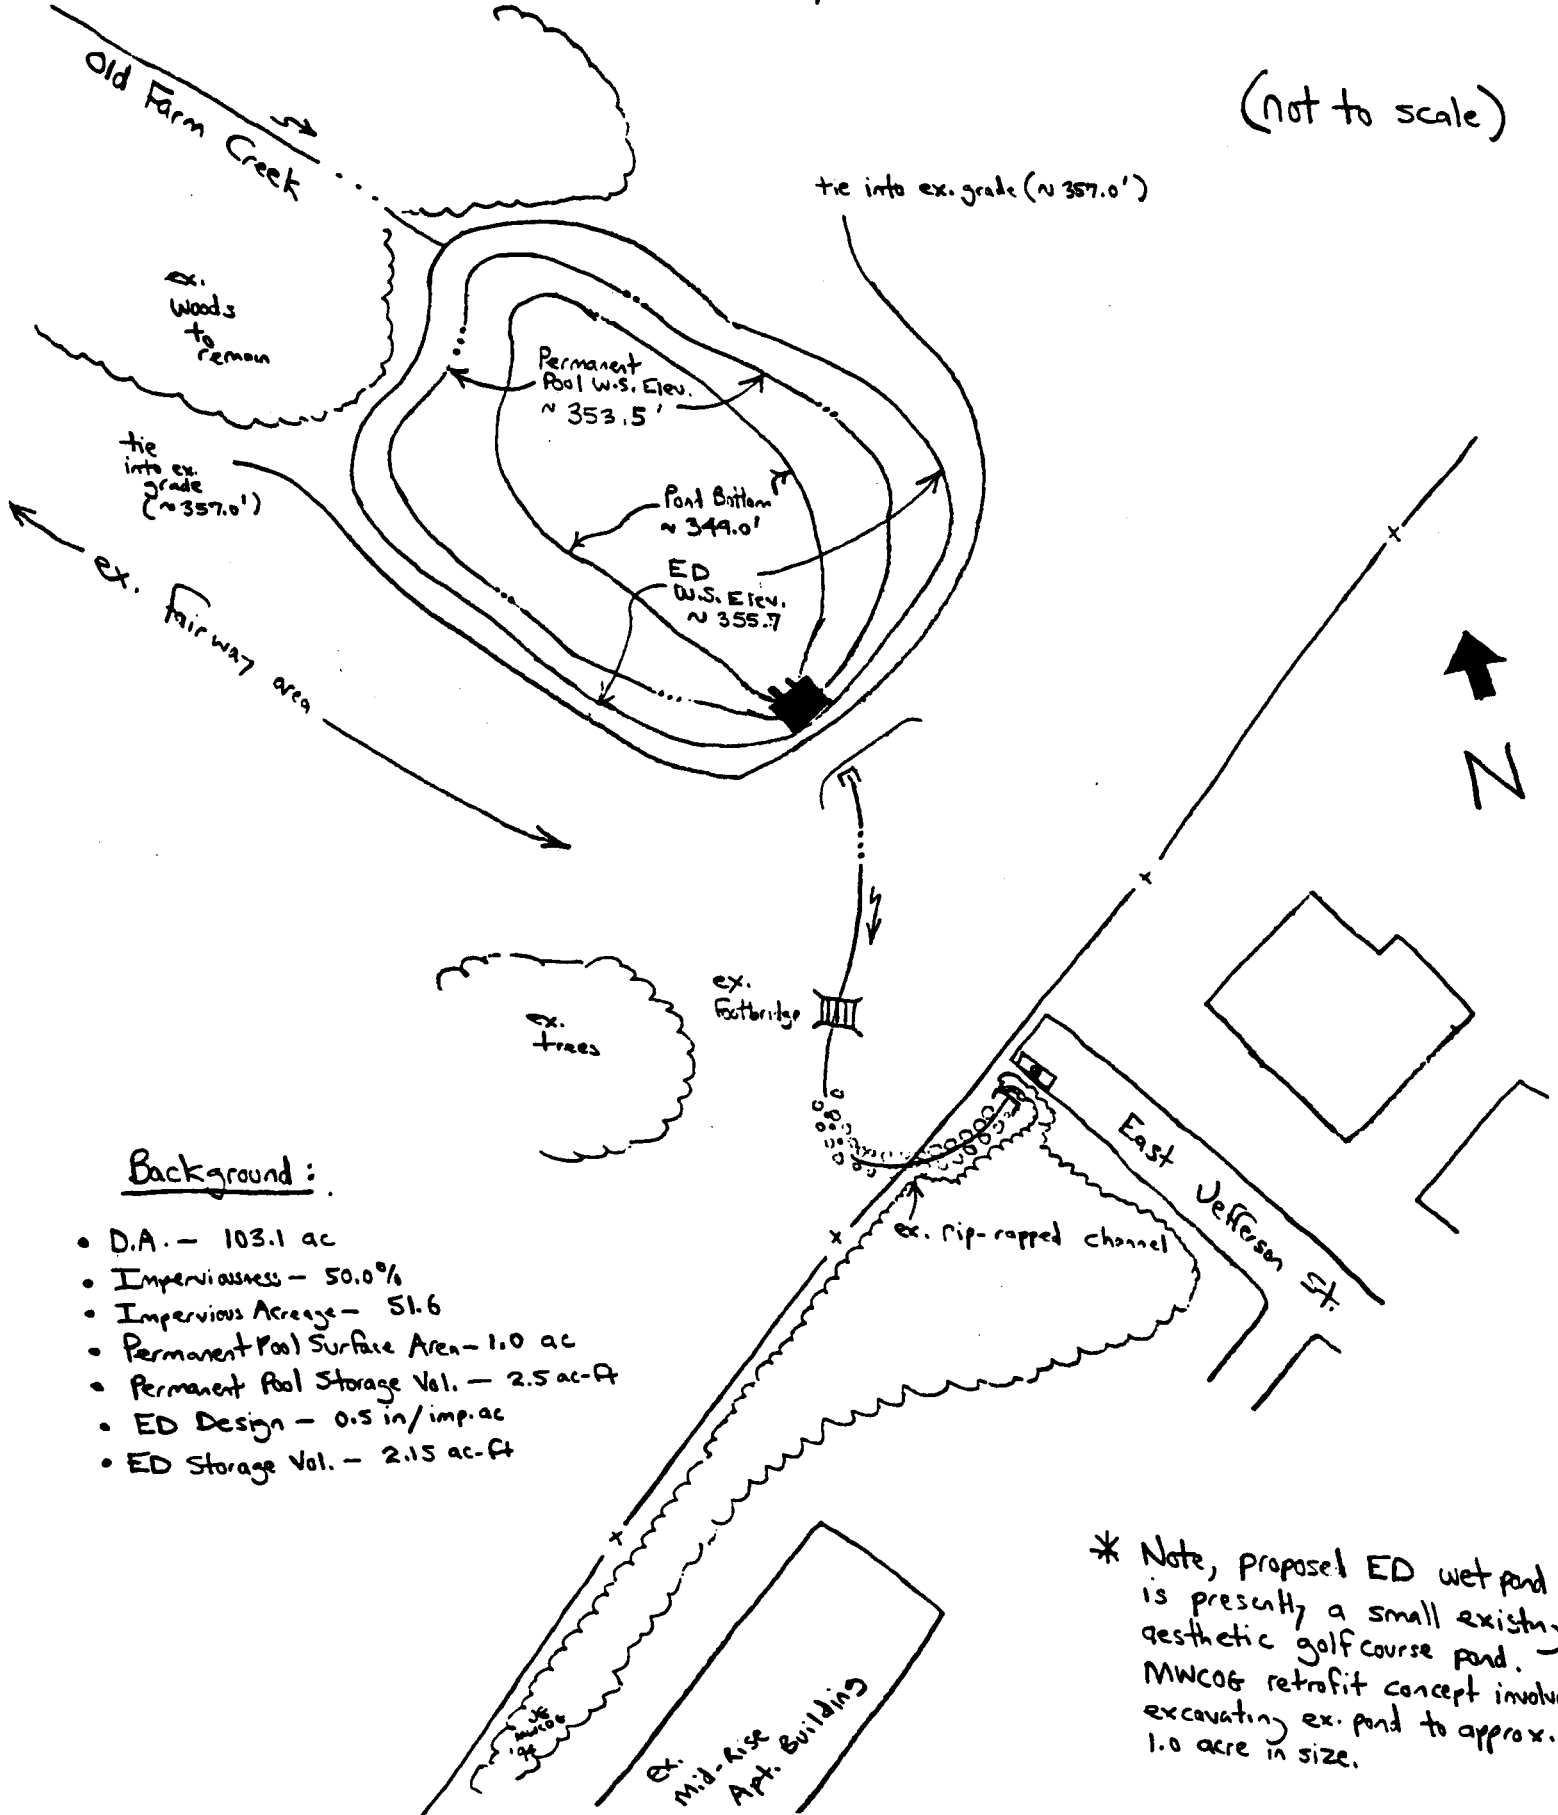 (not to scale)
Old Farm
Creek
tie into ex. grade (~ 357.0')
ex.
Woods
to
remain
Permanent
Pool W.S. Elev.
~ 353.5'
tie
into ex.
grade
(~357.0')
Pond Bottom
~ 349.0'
ED
W.S. Elev.
~ 355.7
ex. Fairway area
N
ex.
Footbridge
ex.
trees
East Jefferson St.
ex. rip-rapped channel
Background:
• D.A. - 103.1 ac
• Imperviousness - 50.0%
• Impervious Acreage - 51.6
• Permanent Pool Surface Area - 1.0 ac
• Permanent Pool Storage Vol. - 2.5 ac-ft
• ED Design - 0.5 in/imp. ac
• ED Storage Vol. - 2.15 ac-ft
* Note, proposed ED wet pond
is presently a small existing
aesthetic golf course pond.
MWCOG retrofit concept involve
excavating ex. pond to approx.
1.0 acre in size.
MWCOG
ex.
Mid-Rise
Apt. Building